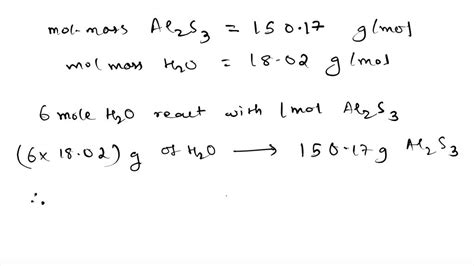 mol-mass Al₂S₃ = 150.17 g/mol
mol mass H₂O = 18.02 g/mol
6 mole H₂O react with 1 mol Al₂S₃
(6x 18.02) g of H₂O → 150.17 g Al₂S₃
∴